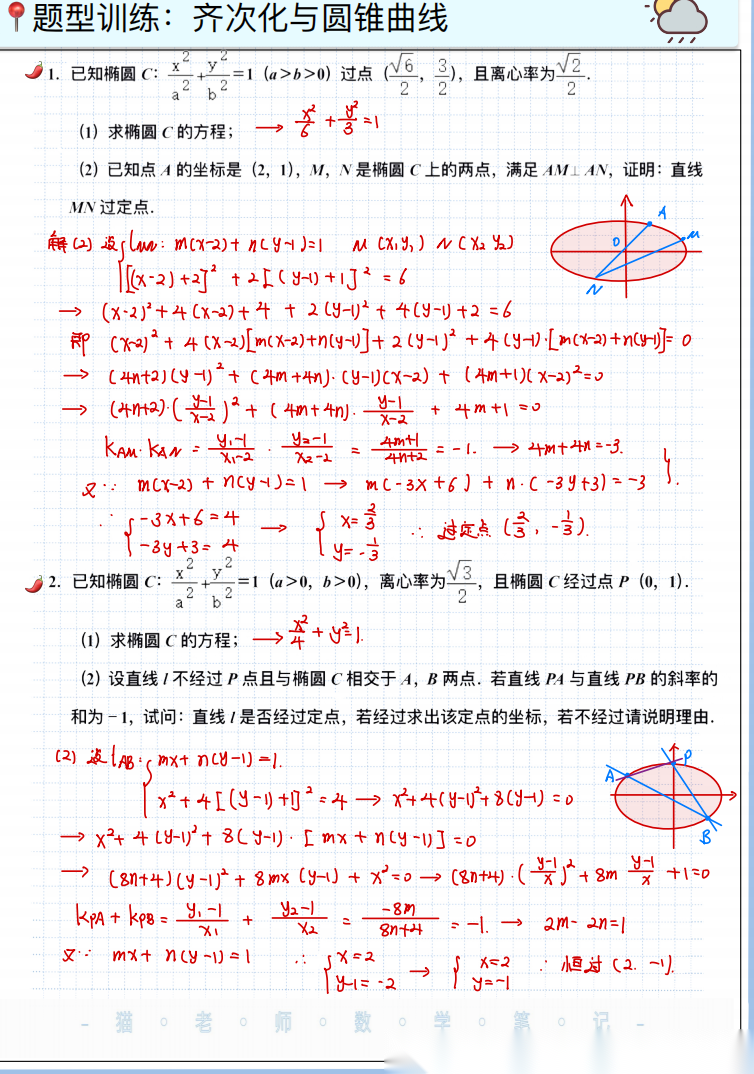 题型训练：齐次化与圆锥曲线
1. 已知椭圆 C：x²/a²+y²/b²=1（a>b>0）过点（√6/2，3/2），且离心率为√2/2.
（1）求椭圆 C 的方程； → x²/6 + y²/3 = 1
（2）已知点 A 的坐标是（2，1），M，N 是椭圆 C 上的两点，满足 AM⊥AN，证明：直线
MN 过定点.
A
O
M
N
解(2) 设{lMN: m(x-2)+n(y-1)=1 M(x₁y₁) N(x₂y₂)
[(x-2)+2]² + 2[(y-1)+1]² = 6
→ (x-2)²+4(x-2)+4 + 2(y-1)² + 4(y-1)+2 = 6
即 (x-2)² + 4(x-2)[m(x-2)+n(y-1)]+2(y-1)² + 4(y-1)·[m(x-2)+n(y-1)]= 0
→ (4n+2)(y-1)² + (4m+4n)·(y-1)(x-2) + (4m+1)(x-2)²=0
→ (4n+2)·(y-1/x-2)² + (4m+4n)· y-1/x-2 + 4m+1 = 0
kAM·kAN = y₁-1/x₁-2 · y₂-1/x₂-2 = 4m+1/4n+2 = -1. → 4m+4n=-3.
又∵ m(x-2)+n(y-1)=1 → m(-3x+6)+n·(-3y+3)=-3 }.
∴ {-3x+6=4 → {x=2/3 ∴ 过定点 (2/3, -1/3).
-3y+3=4 y=-1/3
2. 已知椭圆 C：x²/a²+y²/b²=1（a>0，b>0），离心率为√3/2，且椭圆 C 经过点 P（0，1）.
（1）求椭圆 C 的方程； → x²/4 + y²=1.
（2）设直线 l 不经过 P 点且与椭圆 C 相交于 A，B 两点．若直线 PA 与直线 PB 的斜率的
和为－1，试问：直线 l 是否经过定点，若经过求出该定点的坐标，若不经过请说明理由．
P
A
B
(2) 设lAB:{mx+n(y-1)=1.
x²+4[(y-1)+1]²=4 → x²+4(y-1)²+8(y-1)=0
→ x²+4(y-1)²+8(y-1)·[mx+n(y-1)]=0
→ (8n+4)(y-1)²+8mx(y-1)+x²=0 → (8n+4)·(y-1/x)²+8m y-1/x +1=0
kPA+kPB = y₁-1/x₁ + y₂-1/x₂ = -8m/8n+4 = -1. → 2m-2n=1
又∵ mx+n(y-1)=1 ∴ {x=2 → {x=2 ∴ 恒过(2.-1).
y-1=-2 y=-1
- 猫 。 老 。 师 。 数 。 学 。 笔 。 记 -